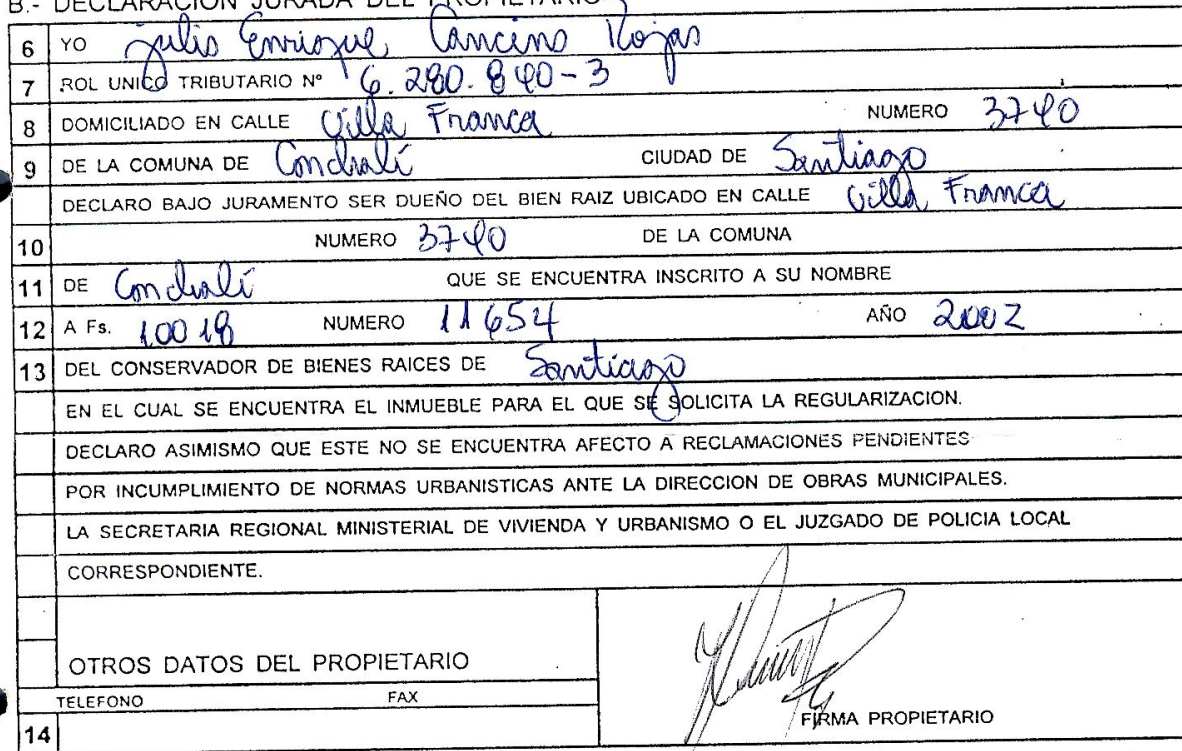 B.- DECLARACION JURADA DEL PROPIETARIO
6 YO Julio Enrique Cancino Rojas
7 ROL UNICO TRIBUTARIO Nº 6.280.840-3
8 DOMICILIADO EN CALLE Villa Franca NUMERO 3740
9 DE LA COMUNA DE Conchalí CIUDAD DE Santiago
DECLARO BAJO JURAMENTO SER DUEÑO DEL BIEN RAIZ UBICADO EN CALLE Villa Franca
10 NUMERO 3740 DE LA COMUNA
11 DE Conchalí QUE SE ENCUENTRA INSCRITO A SU NOMBRE
12 A Fs. 10018 NUMERO 11654 AÑO 2002
13 DEL CONSERVADOR DE BIENES RAICES DE Santiago
EN EL CUAL SE ENCUENTRA EL INMUEBLE PARA EL QUE SE SOLICITA LA REGULARIZACION.
DECLARO ASIMISMO QUE ESTE NO SE ENCUENTRA AFECTO A RECLAMACIONES PENDIENTES
POR INCUMPLIMIENTO DE NORMAS URBANISTICAS ANTE LA DIRECCION DE OBRAS MUNICIPALES.
LA SECRETARIA REGIONAL MINISTERIAL DE VIVIENDA Y URBANISMO O EL JUZGADO DE POLICIA LOCAL
CORRESPONDIENTE.
OTROS DATOS DEL PROPIETARIO
TELEFONO FAX
FIRMA PROPIETARIO
14